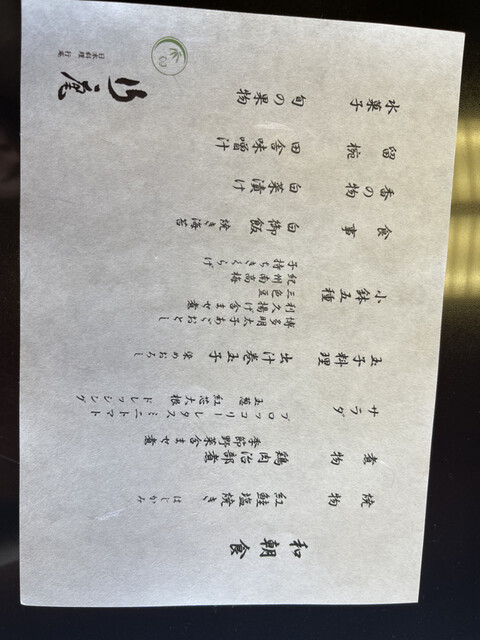 和朝食
焼物
紅鮭塩焼き はじかみ
煮物
鶏肉治部煮
季節野菜含ませ煮
サラダ
ブロッコリー レタス ミニトマト
玉葱 紅芯大根 ドレッシング
玉子料理
出汁巻玉子 染めおろし
小鉢五種
博多明太子
利久揚げ含ませ煮
三色豆
紀州南高梅
子持ちきくらげ
食事
白御飯 焼き海苔
香の物
白菜漬け
留椀
田舎味噌汁
水菓子
旬の果物
日本料理